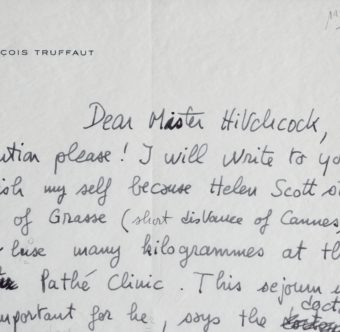 ÇOIS TRUFFAUT
Dear Mister Hitchcock,
ution please! I will write to yo
ish my self because Helen Scott st
of Grasse (short distance of Cannes
lose many kilogrammes at th
Pathé Clinic. This sejourn i
mportant for he, says the doct